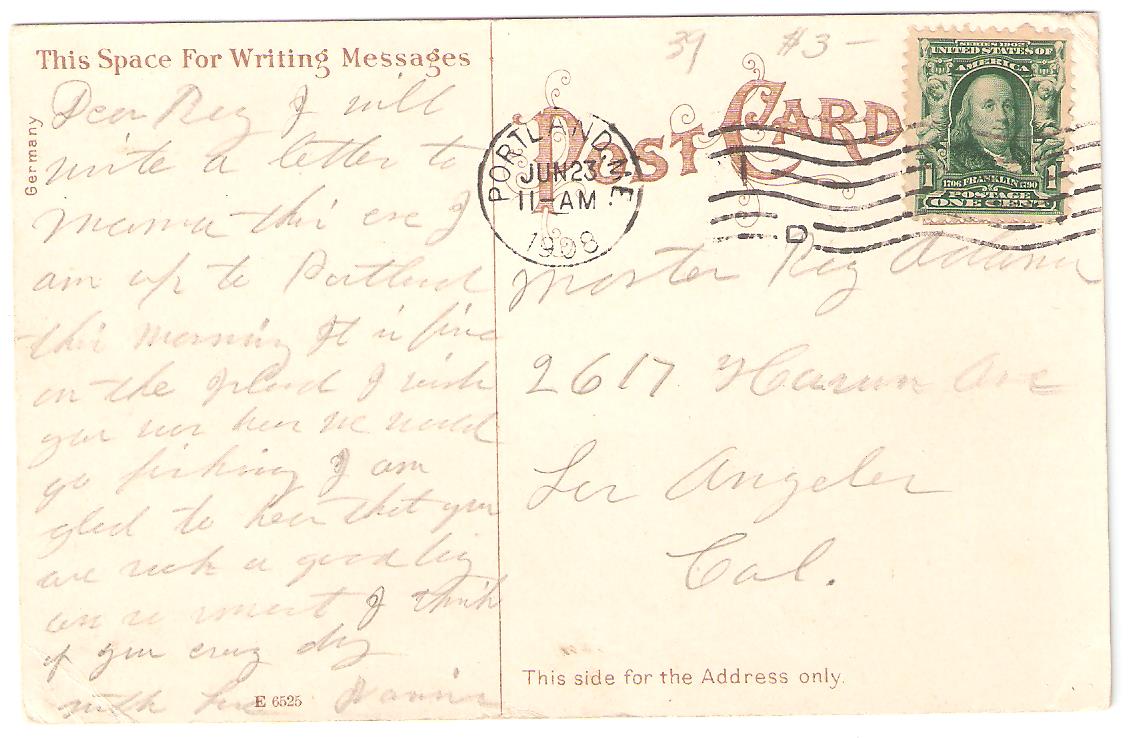 This Space For Writing Messages
Germany
Dear Reg I will
write a letter to
mama this eve I
am up to Portland
this morning It is fine
on the I wish
you was here we would
go fishing I am
glad to hear that you
are such a good big
I think
of you every day
with love
E 6525
39 #3-
POST CARD
PORTLAND, ME.
JUN 23
11-AM
1908
D
SERIES 1902
UNITED STATES OF
AMERICA
1 1
1706 FRANKLIN 1790
POSTAGE
ONE CENT
Master Reg Adams
2617 Ave
Los Angeles
Cal.
This side for the Address only.